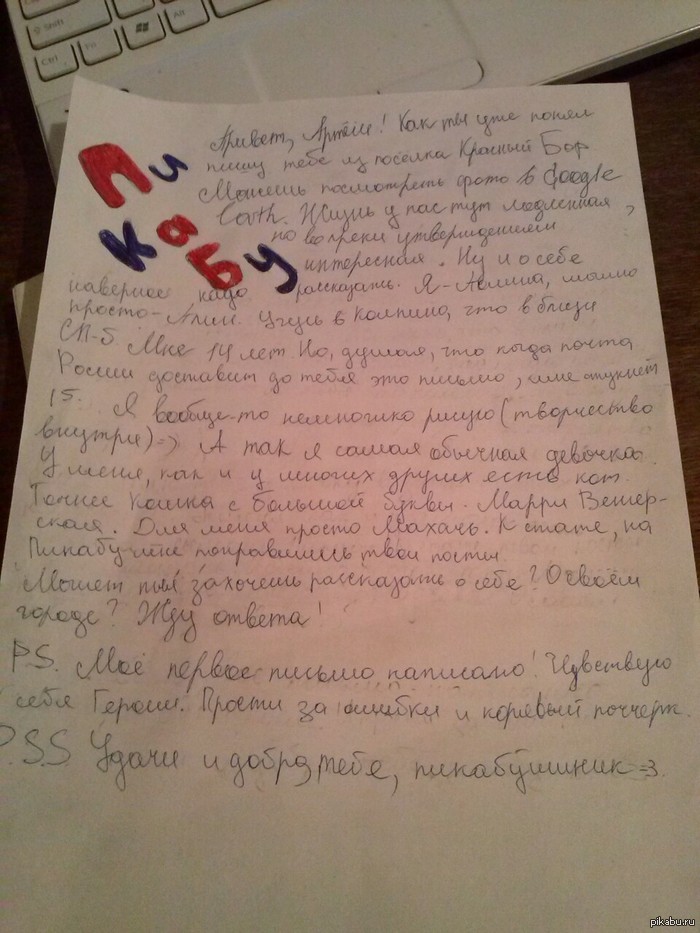 Shift
Ctrl
Fn
Alt
Пи
кабу
Привет, Артём! Как ты уже понял
пишу тебе из посёлка Красный Бор
Можешь посмотреть фото в Google
Earth. Жизнь у нас тут медленная,
но вопреки утверждениям
интересная. Ну и о себе
наверное надо рассказать. Я - Алина, можно
просто - Алин. Учусь в Колпино, что в близи
СП-б Мне 14 лет. Но, думая, что когда почта
России доставит до тебя это письмо, мне стукнет
15. Я вообще-то немножко рисую (творчество
внутри) =) А так я самая обычная девочка.
У меня, как и у многих других есть кот.
Точнее Кошка с большой буквы - Марри Вешер-
ская. Для меня просто Махачь. Кстате, на
Пикабу мне понравились твои посты.
Может ты захочешь рассказать о себе? О своём
городе? Жду ответа!
P.S. Моё первое письмо написано! Чувствую
себя Героем. Прости за ошибки и корявый поччерк.
P.S.S Удачи и добра, тебе, пикабушник =3.
pikabu.ru